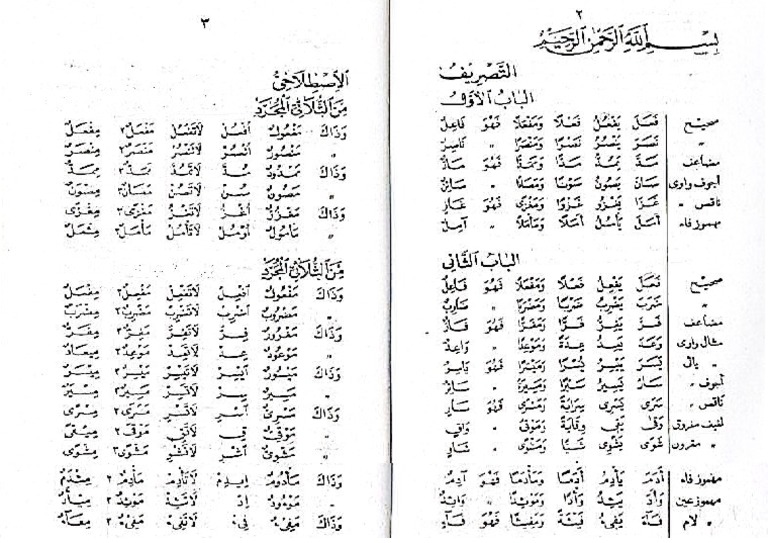 ٢
بِسْمِ اللهِ الرَّحْمٰنِ الرَّحِيْمِ
التَّصْرِيْفُ
البَابُ الأَوَّلُ
صحيح فَعَلَ يَفْعُلُ فَعْلًا وَمَفْعَلًا فَهُوَ فَاعِلٌ
〃 نَصَرَ يَنْصُرُ نَصْرًا وَمَنْصَرًا 〃 نَاصِرٌ
مضاعف مَدَّ يَمُدُّ مَدًّا وَمَمَدًّا فَهُوَ مَادٌّ
أجوف واوى صَانَ يَصُوْنُ صَوْنًا وَمَصَانًا 〃 صَائِنٌ
ناقص 〃 غَزَا يَغْزُوْ غَزْوًا وَمَغْزًى فَهُوَ غَازٍ
مهموز فاء أَمَلَ يَأْمُلُ أَمْلًا وَمَأْمَلًا 〃 آمِلٌ
البَابُ الثَّانِى
صحيح فَعَلَ يَفْعِلُ فَعْلًا وَمَفْعَلًا فَهُوَ فَاعِلٌ
〃 ضَرَبَ يَضْرِبُ ضَرْبًا وَمَضْرَبًا 〃 ضَارِبٌ
مضاعف فَرَّ يَفِرُّ فَرًّا وَمَفَرًّا فَهُوَ فَارٌّ
مثال واوى وَعَدَ يَعِدُ عِدَةً وَمَوْعِدًا 〃 وَاعِدٌ
〃 يائى يَسَرَ يَيْسِرُ يُسْرًا وَمَيْسَرًا 〃 يَاسِرٌ
أجوف 〃 سَارَ يَسِيْرُ سَيْرًا فَهُوَ سَائِرٌ
ناقص 〃 سَرَى يَسْرِى سِرَايَةً وَمَسْرًى فَهُوَ سَارٍ
لفيف مفروق وَقَى يَقِى وِقَايَةً وَمَوْقًى 〃 وَاقٍ
〃 مقرون شَوَى يَشْوِى شَيًّا وَمَشْوًى 〃 شَاوٍ
مهموز فاء أَدَمَ يَأْدِمُ أَدْمًا وَمَأْدَمًا فَهُوَ آدِمٌ
مهموز عين وَأَدَ يَئِدُ وَأْدًا وَمَوْئِدًا 〃 وَائِدٌ
〃 لام فَاءَ يَفِىْءُ فَيْئَةً وَمَفِيْئًا فَهُوَ فَاءٍ
٣
الاِصْطِلَاحِىُّ
مِنَ الثُّلَاثِىِّ المُجَرَّدِ
وَذَاكَ مَفْعُوْلٌ اُفْعُلْ لَاتَفْعُلْ مَفْعَلٌ٢ مِفْعَلٌ
〃 مَنْصُوْرٌ اُنْصُرْ لَاتَنْصُرْ مَنْصَرٌ٢ مِنْصَرٌ
وَذَاكَ مَمْدُوْدٌ مُدَّ لَاتَمُدَّ مَمَدٌّ٢ مِمَدٌّ
〃 مَصُوْنٌ صُنْ لَاتَصُنْ مَصَانٌ٢ مِصْوَنٌ
وَذَاكَ مَغْزُوٌّ اُغْزُ لَاتَغْزُ مَغْزًى٢ مِغْزًى
〃 مَأْمُوْلٌ اُوْمُلْ لَاتَأْمُلْ مَأْمَلٌ٢ مِئْمَلٌ
مِنَ الثُّلَاثِىِّ المُجَرَّدِ
وَذَاكَ مَفْعُوْلٌ اِفْعِلْ لَاتَفْعِلْ مَفْعِلٌ٢ مِفْعَلٌ
〃 مَضْرُوْبٌ اِضْرِبْ لَاتَضْرِبْ مَضْرِبٌ٢ مِضْرَبٌ
وَذَاكَ مَفْرُوْرٌ فِرَّ لَاتَفِرَّ مَفِرٌّ٢ مِفَرٌّ
〃 مَوْعُوْدٌ عِدْ لَاتَعِدْ مَوْعِدٌ٢ مِيْعَادٌ
وَذَاكَ مَيْسُوْرٌ اِيْسِرْ لَاتَيْسِرْ مَيْسِرٌ٢ مِيْسَرٌ
〃 مَسِيْرٌ سِرْ لَاتَسِرْ مَسِيْرٌ٢ مِسْيَرٌ
وَذَاكَ مَسْرِىٌّ اِسْرِ لَاتَسْرِ مَسْرًى٢ مِسْرًى
〃 مَوْقِىٌّ قِ لَاتَقِ مَوْقًى٢ مِيْقًى
〃 مَشْوِىٌّ اِشْوِ لَاتَشْوِ مَشْوًى٢ مِشْوًى
وَذَاكَ مَأْدُوْمٌ اِيْدِمْ لَاتَأْدِمْ مَأْدِمٌ٢ مِئْدَمٌ
〃 مَوْءُوْدٌ اِدْ لَاتَئِدْ مَوْئِدٌ٢
وَذَاكَ مَفِىْءٌ فِىْءْ لَاتَفِىْءْ مَفِىْءٌ٢